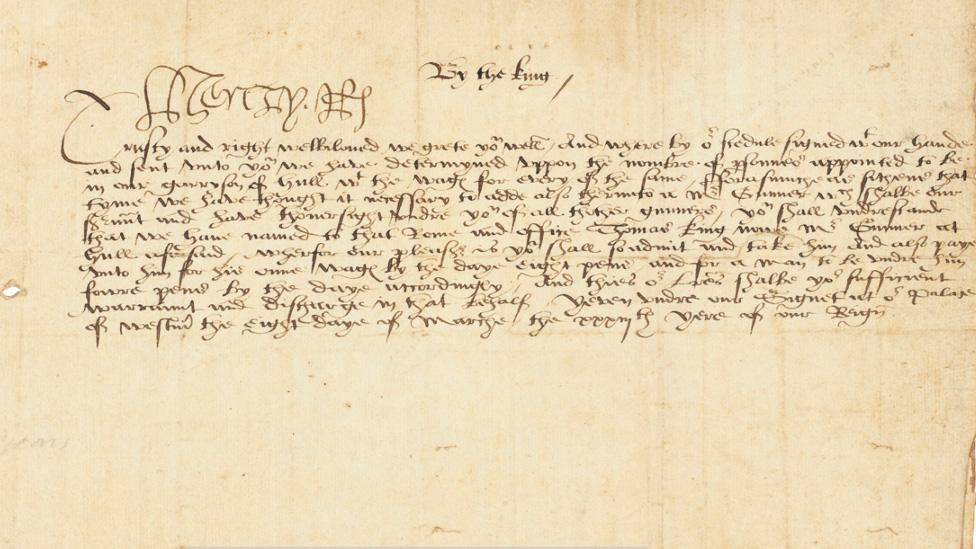 By the king
Henry R
Trusty and right welbiloved we grete yo^u well / And where by o^r scedule signed w^t our hande
and sent unto yo^u we have determyned uppon the nombre of psonnes appointed to be
in our garryson of Hull w^t the wag for every of the same / Forasmuche as sithens that
tyme we have thought it necessary to adde also therunto a M^r Gunner w^ch shalbe our
s^rvnt and have thoversight undre yo^u of all thother gunners / yo^u shall undrestande
that we have named to that Rome and office Thomas King nowe M^r Gunner at
Hull aforesaid / Wherfor our pleas^r is yo^u shall so admit and take him And also paye
unto him for his owne wag by the daye eight pens and for a man to be undre him
fowre pens by the daye accordingly / And thies o^r lres shalbe yo^r sufficient
warraunt and discharge in that behalf / Yeven undre our Signet at o^r Palace
of westm the Eight daye of Marche the xxxiiith yere of our Reign
years